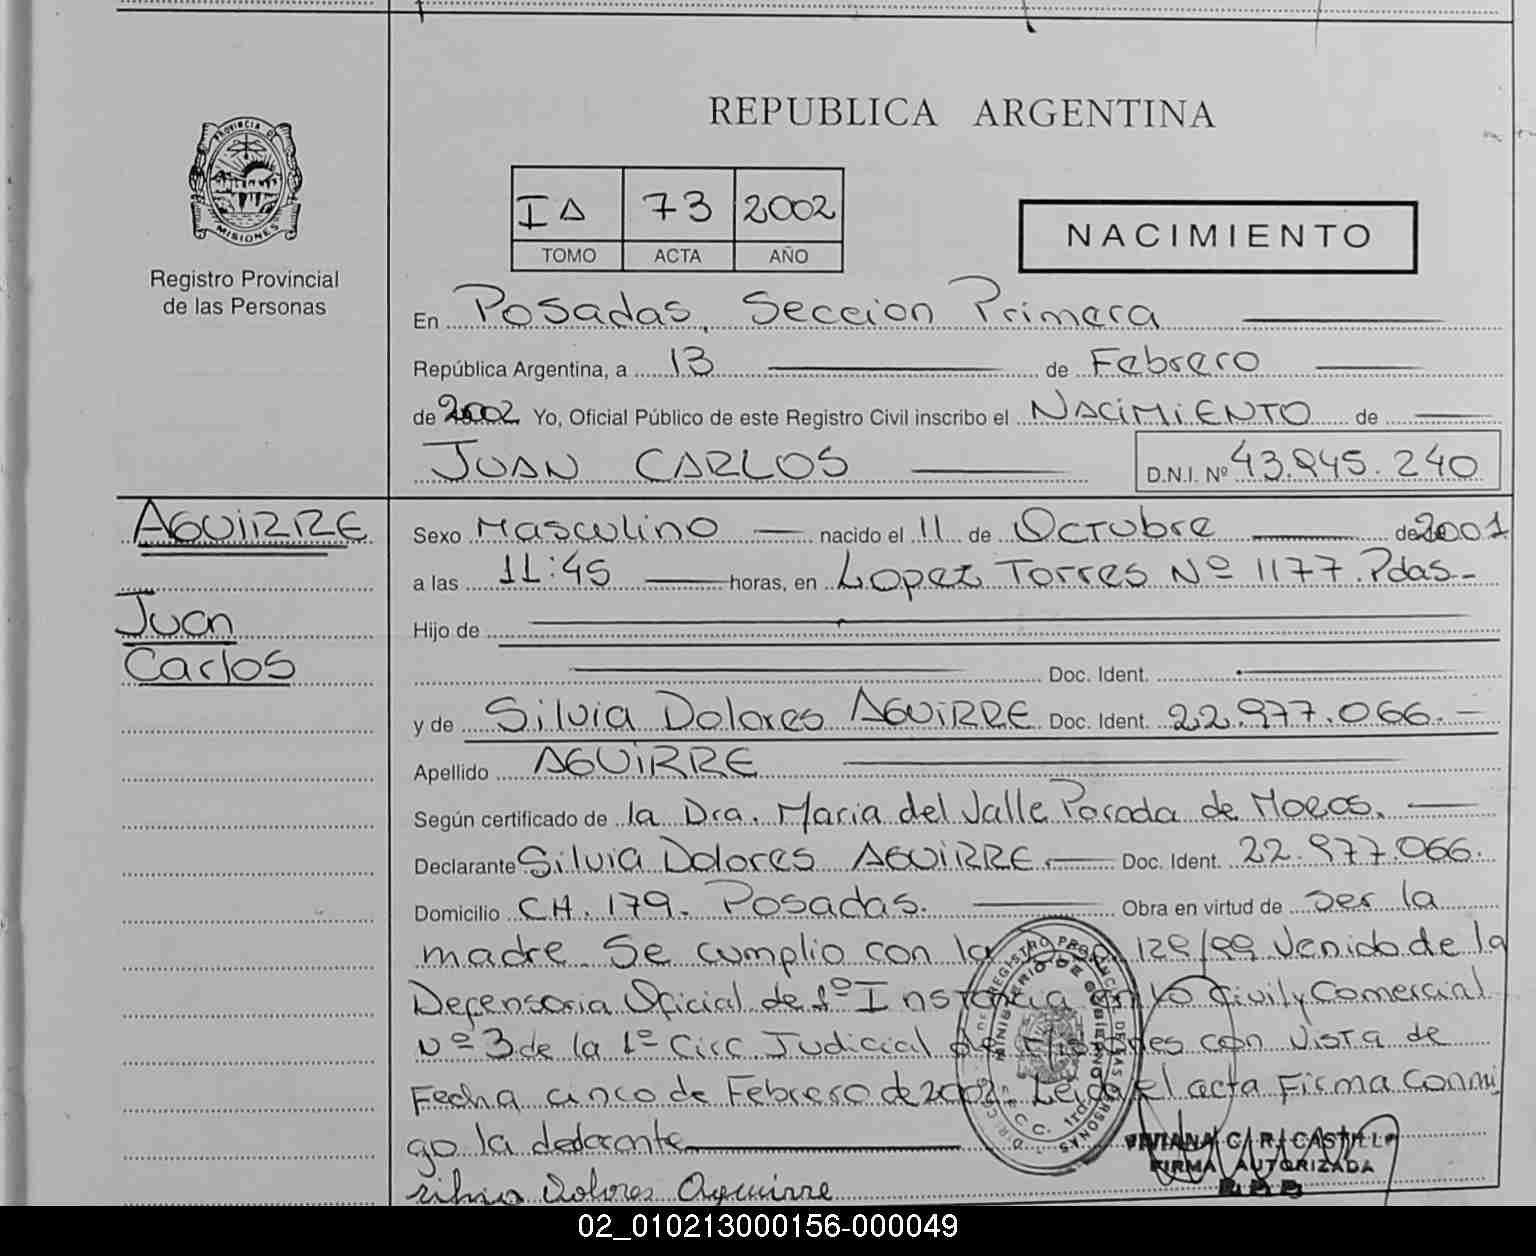 REPUBLICA ARGENTINA
PROVINCIA DE
MISIONES
Registro Provincial
de las Personas
IA 73 2002
TOMO ACTA AÑO
NACIMIENTO
En Posadas, Seccion Primera
República Argentina, a 13 de Febrero
de 2002 Yo, Oficial Público de este Registro Civil inscribo el NACIMIENTO de
JUAN CARLOS D.N.I. Nº 43.845.240
AGUIRRE
Juan
Carlos
Sexo Masculino nacido el 11 de Octubre de 2001
a las 11:45 horas, en Lopez Torres Nº 1177. Pdas-
Hijo de
Doc. Ident.
y de Silvia Dolores AGUIRRE Doc. Ident. 22.977.066.-
Apellido AGUIRRE
Según certificado de la Dra. Maria del Valle Posada de Moros.
Declarante Silvia Dolores AGUIRRE. Doc. Ident. 22.977.066.
Domicilio CH. 179. Posadas. Obra en virtud de ser la
madre. Se cumplio con la 129/99 Venido de la
Defensoria Oficial de 1º Instancia en lo Civil y Comercial
Nº 3 de la 1º Circ Judicial de con Vista de
Fecha cinco de Febrero de 2002. Leida el acta Firma Conmi
go la declarante
Silvia Dolores Aguirre
VIVIANA C. R. CASTILLO
FIRMA AUTORIZADA
R.P.P
02_010213000156-000049